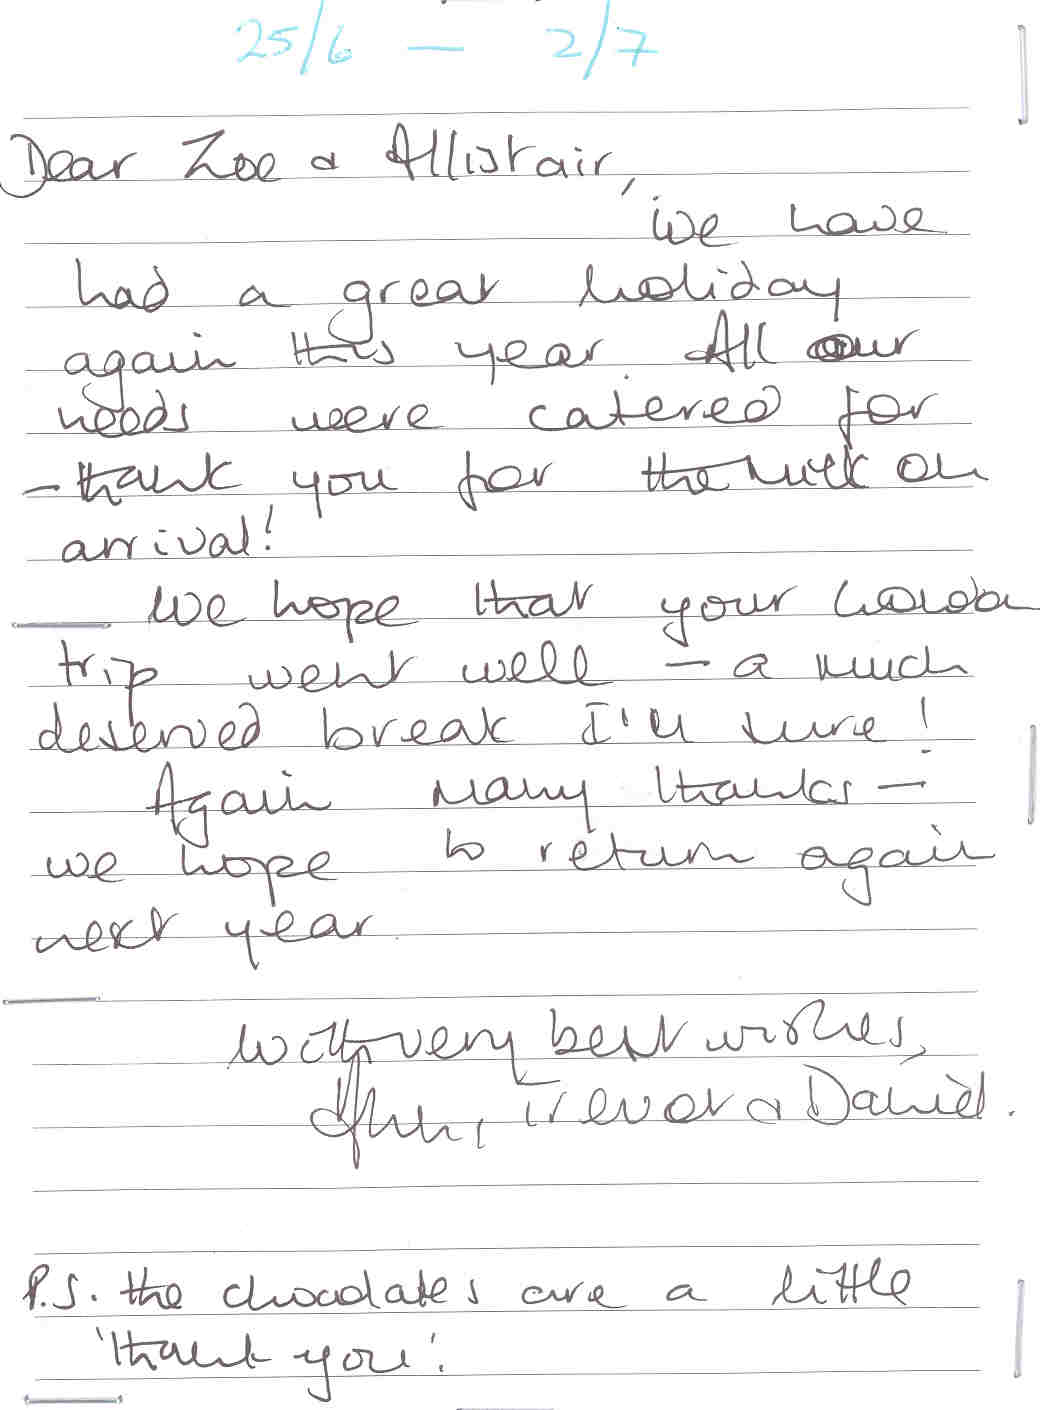 25/6 — 2/7
Dear Zoe & Allistair,
We have
had a great holiday
again this year. All our
needs were catered for
- thank you for the milk on
arrival!
We hope that your London
trip went well - a much
deserved break I'm sure!
Again many thanks -
we hope to return again
next year.
With very best wishes,
Trevor & David.
P.S. the chocolates are a little
'thank you'.